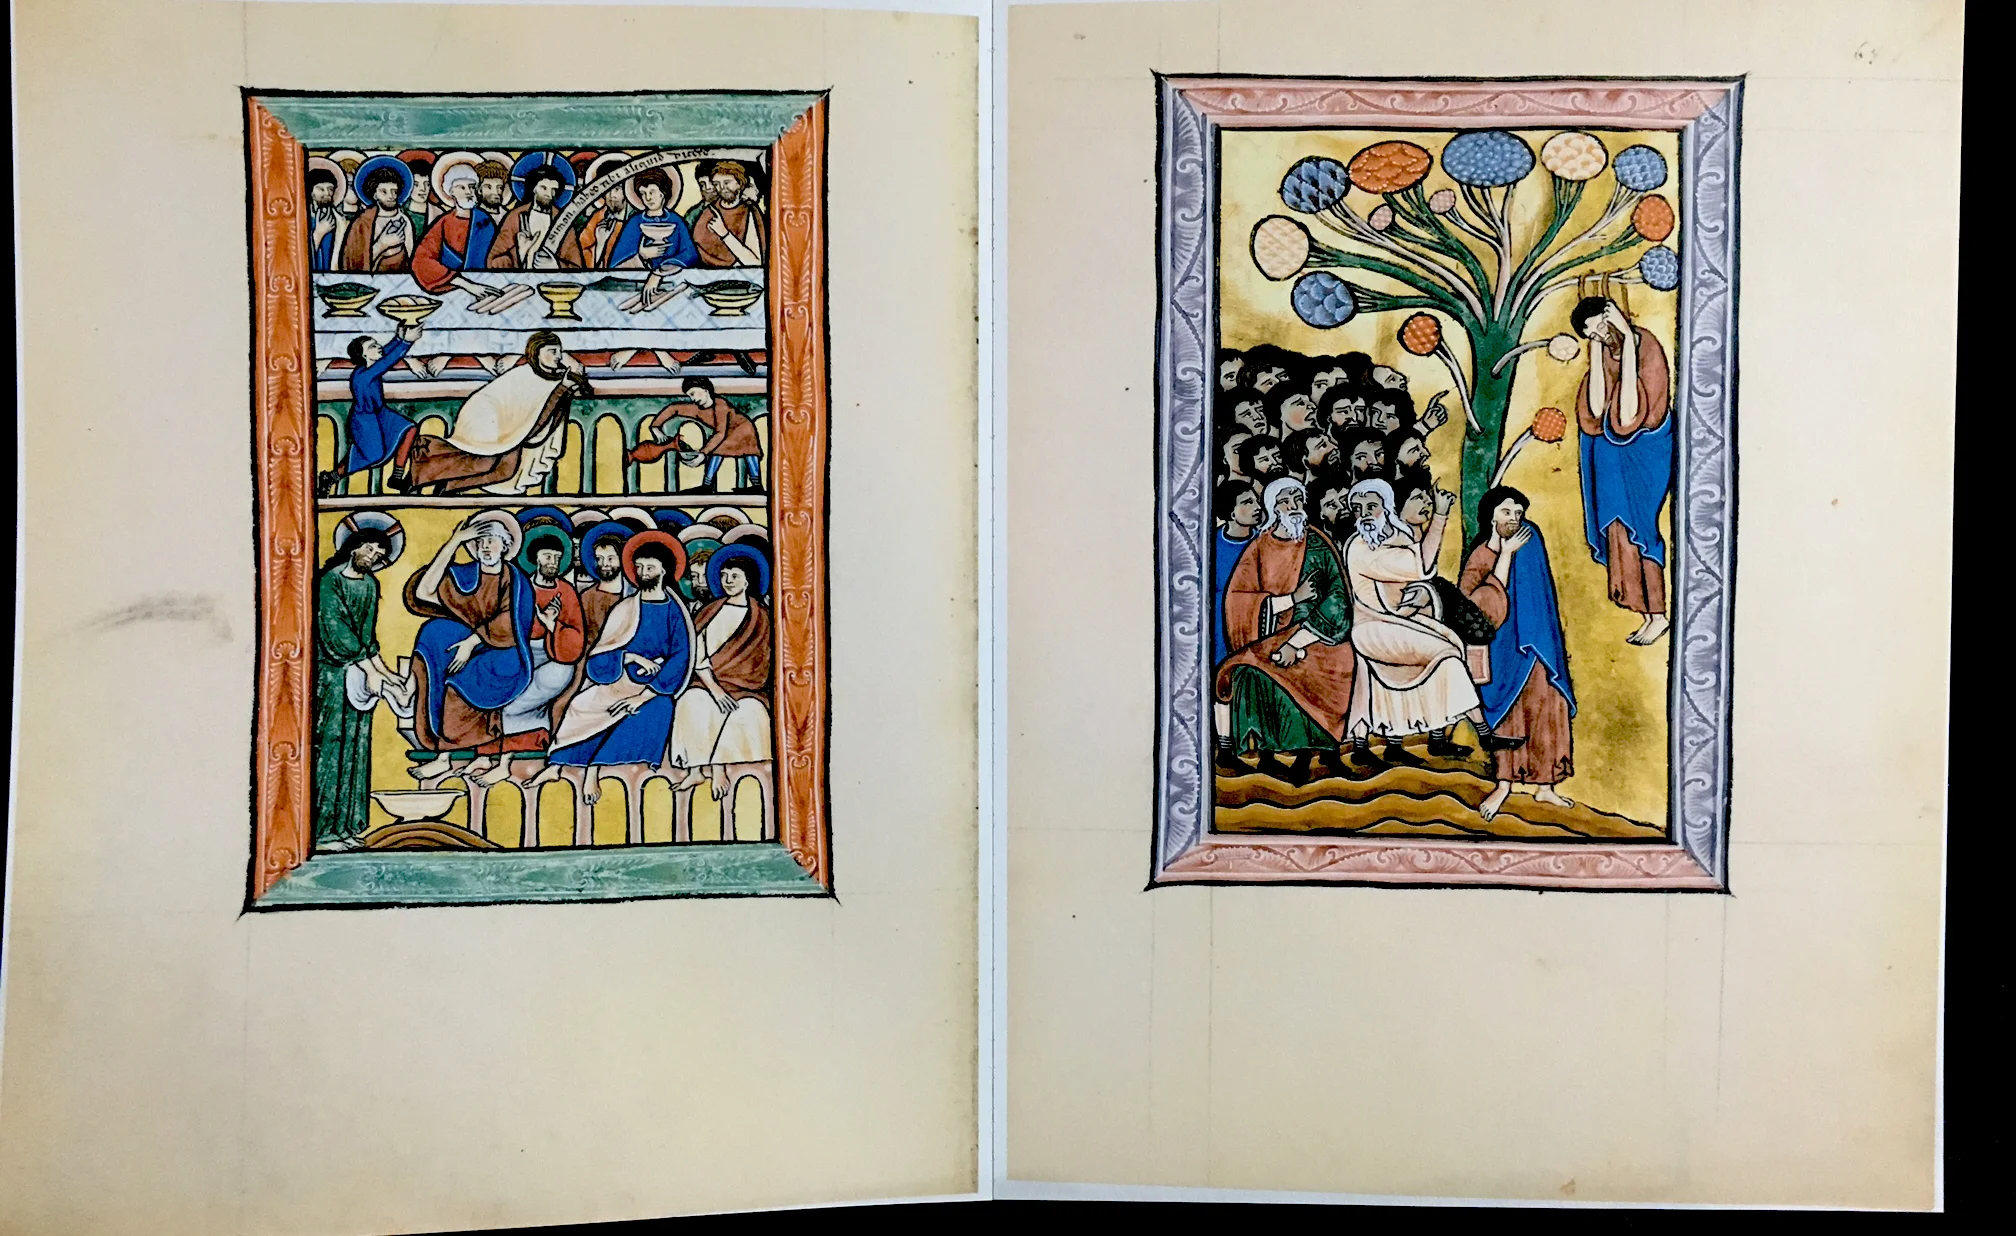 Simon habeo tibi aliquid dicere.